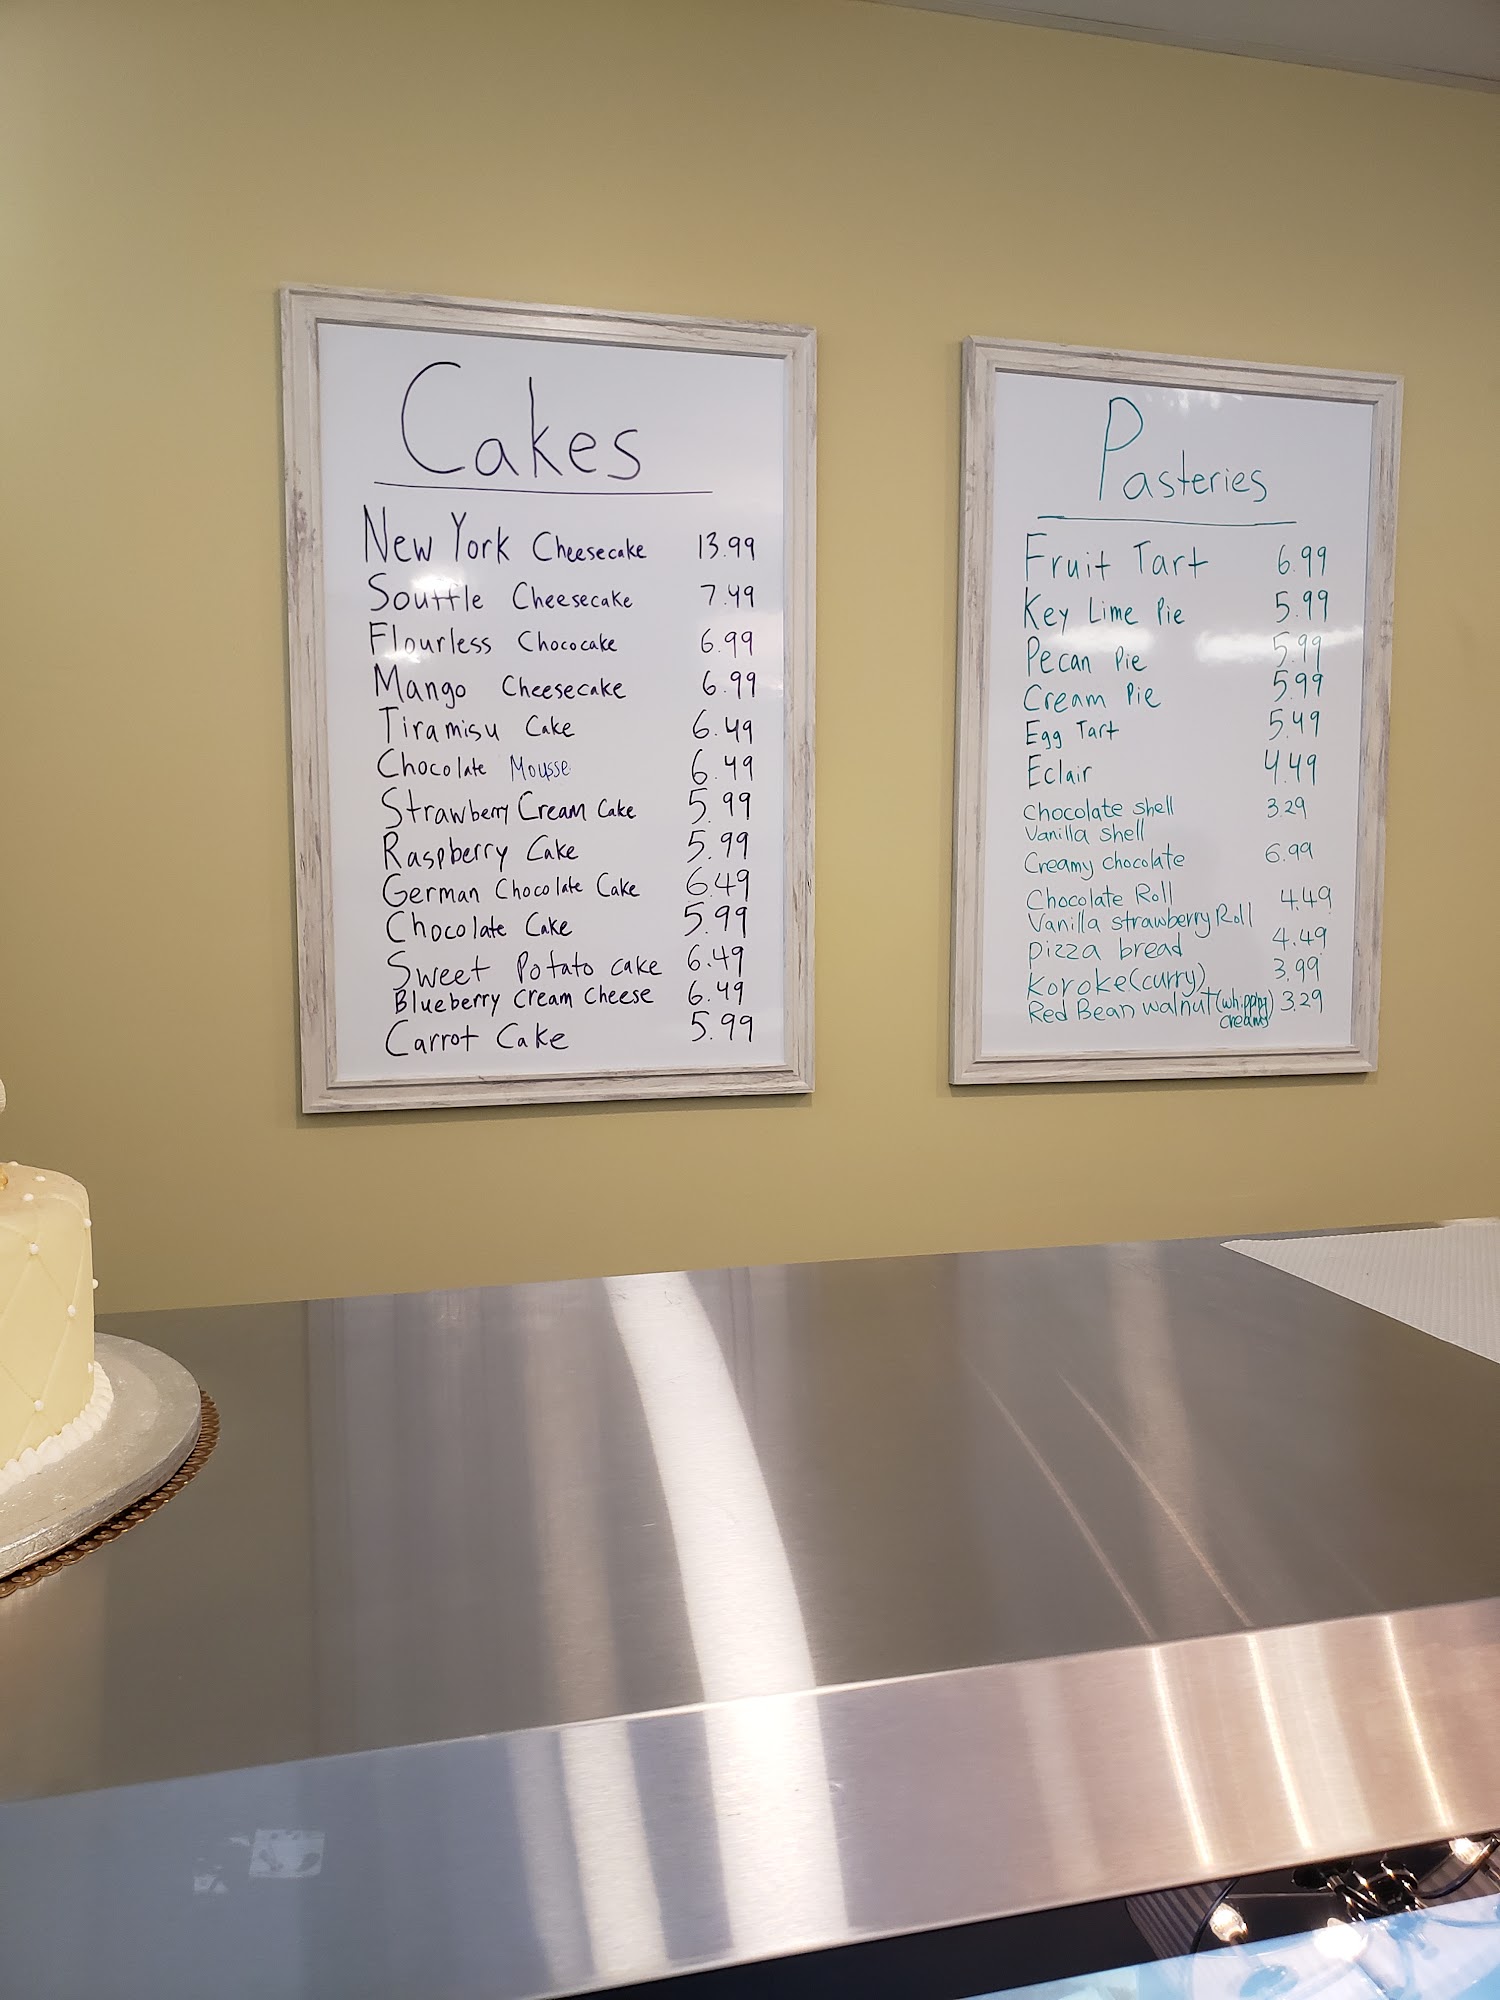 Cakes
New York Cheesecake 13.99
Souffle Cheesecake 7.49
Flourless Chococake 6.99
Mango Cheesecake 6.99
Tiramisu Cake 6.49
Chocolate Mousse 6.49
Strawberry Cream Cake 5.99
Raspberry Cake 5.99
German Chocolate Cake 6.49
Chocolate Cake 5.99
Sweet Potato cake 6.49
Blueberry Cream Cheese 6.49
Carrot Cake 5.99
Pasteries
Fruit Tart 6.99
Key Lime Pie 5.99
Pecan Pie 5.99
Cream Pie 5.99
Egg Tart 5.49
Eclair 4.49
Chocolate shell 3.29
Vanilla shell
Creamy chocolate 6.99
Chocolate Roll 4.49
Vanilla strawberry Roll
Pizza bread 4.49
Koroke(curry) 3.99
Red Bean walnut(whipping creamy) 3.29